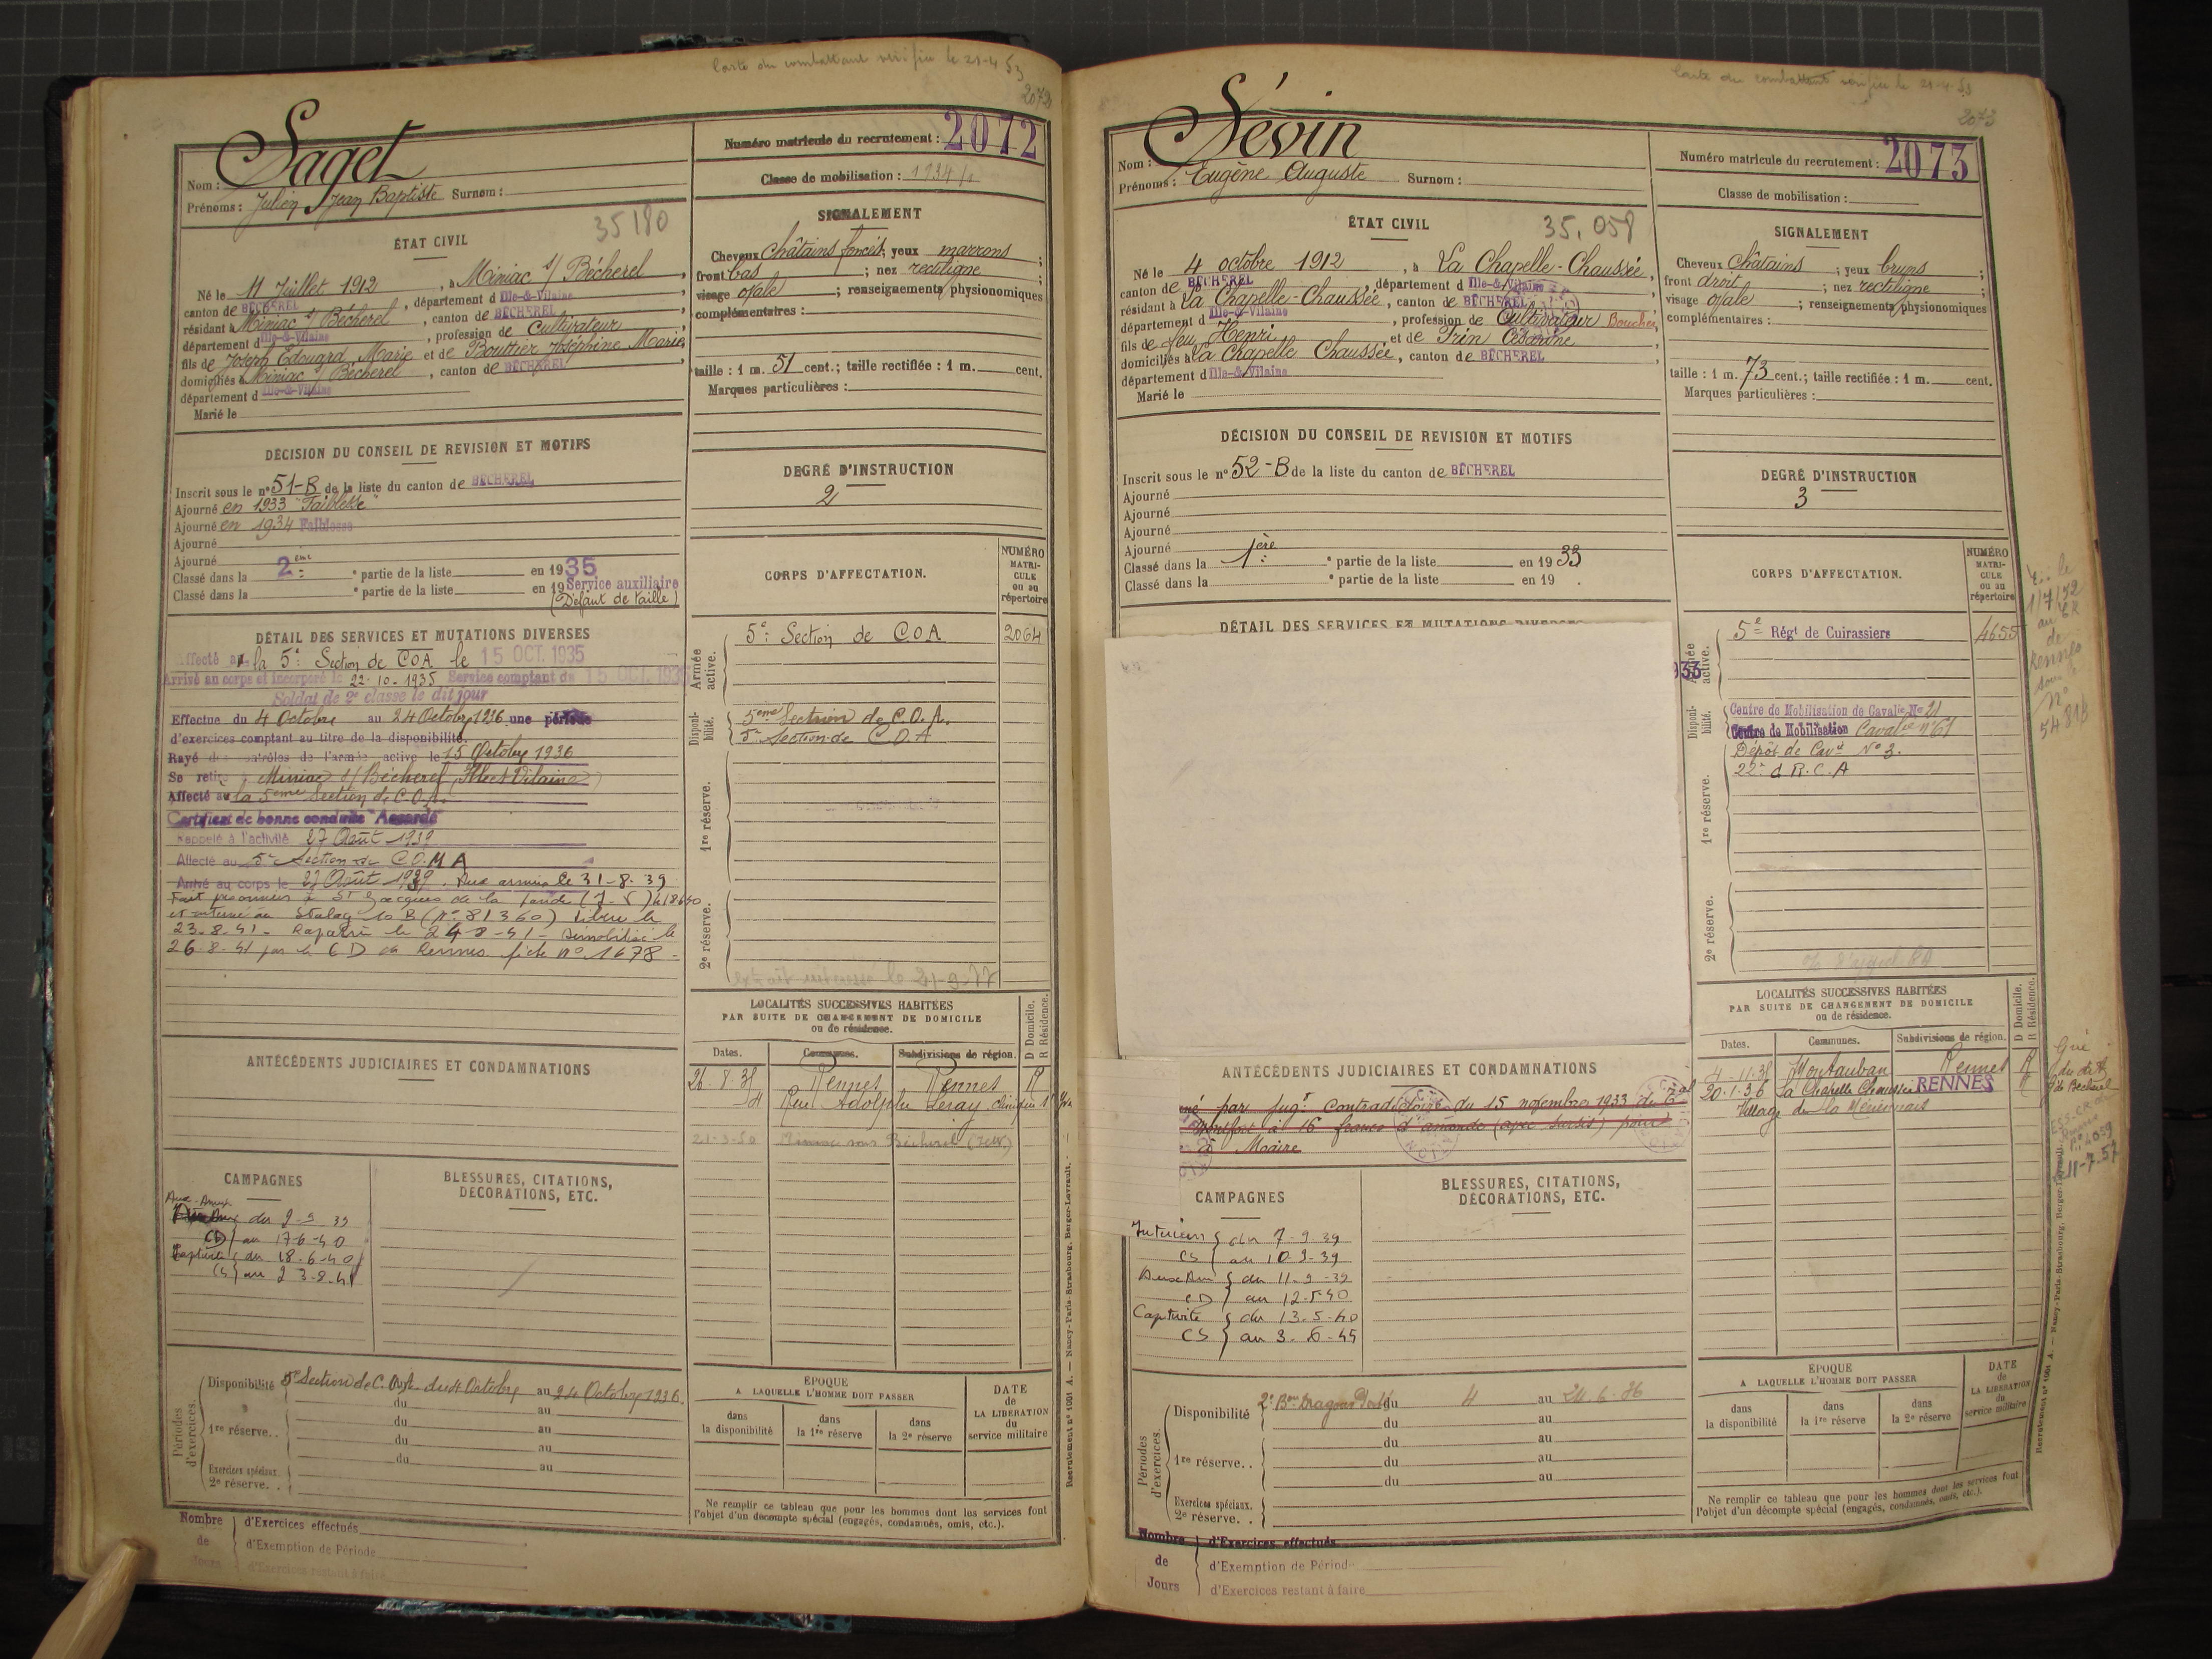 Carte du combattant vérifiée le 21-4-53
2072
Saget
Nom :
Prénoms : Julien Jean Baptiste Surnom :
Numéro matricule du recrutement : 2072
Classe de mobilisation : 1934/
35180
ÉTAT CIVIL
Né le 11 Juillet 1912, à Miniac s/ Bécherel,
canton de BÉCHEREL, département d Ille-&-Vilaine
résidant à Miniac s/ Bécherel, canton de BÉCHEREL
département d Ille-&-Vilaine, profession de Cultivateur
fils de Joseph Édouard Marie et de Bouttier Joséphine Marie,
domiciliés à Miniac s/ Bécherel, canton de BÉCHEREL
département d Ille-&-Vilaine
Marié le
SIGNALEMENT
Cheveux châtains foncés; yeux marrons;
front bas; nez rectiligne;
visage ovale; renseignements physionomiques
complémentaires :
taille : 1 m. 51 cent.; taille rectifiée : 1 m. cent.
Marques particulières :
DÉCISION DU CONSEIL DE REVISION ET MOTIFS
Inscrit sous le n° 51-B de la liste du canton de BÉCHEREL
Ajourné en 1933 "Faiblesse"
Ajourné en 1934 Faiblesse
Ajourné
Ajourné
Classé dans la 2ème partie de la liste en 1935
Classé dans la e partie de la liste en 19 Service auxiliaire
(Défaut de taille)
DEGRÉ D'INSTRUCTION
2
CORPS D'AFFECTATION.
NUMÉRO MATRICULE ou au répertoire
Armée active.
5e Section de COA 2064
Disponibilité.
5ème Section de C.O.A.
5e Section de COA
1re réserve.
2e réserve.
DÉTAIL DES SERVICES ET MUTATIONS DIVERSES
Affecté à la 5e Section de COA le 15 OCT. 1935
Arrivé au corps et incorporé le 22-10-1935 Service comptant du 15 OCT. 1935
Soldat de 2e classe le dit jour
Effectue du 4 Octobre au 24 Octobre 1936 une période
d'exercices comptant au titre de la disponibilité.
Rayé des contrôles de l'armée active le 15 Octobre 1936
Se retire à Miniac s/ Bécherel (Ille et Vilaine)
Affecté à la 5ème Section de C.O.A.
Certificat de bonne conduite "Accordé"
Rappelé à l'activité 27 Août 1939
Affecté au 5e Section de C.O.M A
Arrivé au corps le 27 Août 1939. Aux armées le 31-8-39
Fait prisonnier à St Jacques de la Lande (I-V) le 18640
et interné au Stalag 10 B (n° 81360) Libéré le
23-8-41 - Rapatrié le 24-8-41 - Démobilisé le
26-8-41 par le CD de Rennes fiche n° 1678 -
ANTÉCÉDENTS JUDICIAIRES ET CONDAMNATIONS
LOCALITÉS SUCCESSIVES HABITÉES
PAR SUITE DE CHANGEMENT DE DOMICILE
ou de résidence.
Dates. Communes. Subdivisions de région. D Domicile. R Résidence.
26-8-38 Rennes Rennes R
Rue Adolphe Leray
21-3-50
CAMPAGNES
Aux Armées
du 2-9 39
CD au 17-6-40
Captivité du 18-6-40
CS au 23-8-41
BLESSURES, CITATIONS,
DÉCORATIONS, ETC.
Périodes d'exercices.
Disponibilité 5e Section de C.O.A. du 4 Octobre au 24 Octobre 1936.
du au
1re réserve.. du au
du au
du au
Exercices spéciaux.
2e réserve. .
ÉPOQUE
A LAQUELLE L'HOMME DOIT PASSER
dans la disponibilité
dans la 1re réserve
dans la 2e réserve
DATE de LA LIBÉRATION du service militaire
Ne remplir ce tableau que pour les hommes dont les services font
l'objet d'un décompte spécial (engagés, condamnés, omis, etc.).
Nombre de Jours
d'Exercices effectués
d'Exemption de Période
d'Exercices restant à faire
Recrutement n° 1001 A. — Nancy-Paris-Strasbourg, Berger-Levrault.
Carte du combattant vérifiée le 21-4-53
2073
Sévin
Nom :
Prénoms : Eugène Auguste Surnom :
Numéro matricule du recrutement : 2073
Classe de mobilisation :
35.058
ÉTAT CIVIL
Né le 4 octobre 1912, à La Chapelle-Chaussée,
canton de BÉCHEREL, département d Ille-&-Vilaine
résidant à La Chapelle-Chaussée, canton de BÉCHEREL
département d Ille-&-Vilaine, profession de Cultivateur Boucher
fils de feu Henri et de Prin Césarine
domiciliés à La Chapelle Chaussée, canton de BÉCHEREL
département d Ille-&-Vilaine
Marié le
SIGNALEMENT
Cheveux châtains; yeux bruns;
front droit; nez rectiligne;
visage ovale; renseignements physionomiques
complémentaires :
taille : 1 m. 73 cent.; taille rectifiée : 1 m. cent.
Marques particulières :
DÉCISION DU CONSEIL DE REVISION ET MOTIFS
Inscrit sous le n° 52-B de la liste du canton de BÉCHEREL
Ajourné
Ajourné
Ajourné
Ajourné
Classé dans la 1ère partie de la liste en 1933
Classé dans la e partie de la liste en 19 .
DEGRÉ D'INSTRUCTION
3
CORPS D'AFFECTATION.
NUMÉRO MATRICULE ou au répertoire
Armée active.
5e Régt de Cuirassiers 4655
Disponibilité.
Centre de Mobilisation de Cavalie No 21
Centre de Mobilisation Cavalie n° 61
Dépôt de Cavie N° 3.
22e d R.C.A
1re réserve.
2e réserve.
DÉTAIL DES SERVICES ET MUTATIONS DIVERSES
933
1/7/52
au
de
Rennes
sous
n°
ANTÉCÉDENTS JUDICIAIRES ET CONDAMNATIONS
né par jugt contradictoire du 15 novembre 1933 du
Montfort à 16 francs d'amende (avec sursis) pour
à Maire
LOCALITÉS SUCCESSIVES HABITÉES
PAR SUITE DE CHANGEMENT DE DOMICILE
ou de résidence.
Dates. Communes. Subdivisions de région. D Domicile. R Résidence.
4-11-35 Montauban Rennes R
20.1.36 La Chapelle Chaussée RENNES R
Village de la
11-7-57
CAMPAGNES
Intérieur du 7-9-39
CS au 10-9-39
Aux Arm du 11-9-39
CD au 12-5-40
Captivité du 13-5-40
CS au 3-6-45
BLESSURES, CITATIONS,
DÉCORATIONS, ETC.
Périodes d'exercices.
Disponibilité 2e Bon Dragons Portés du 4 au 24-6-36
du au
du au
1re réserve.. du au
du au
Exercices spéciaux.
2e réserve. .
ÉPOQUE
A LAQUELLE L'HOMME DOIT PASSER
dans la disponibilité
dans la 1re réserve
dans la 2e réserve
DATE de LA LIBÉRATION du service militaire
Ne remplir ce tableau que pour les hommes dont les services font
l'objet d'un décompte spécial (engagés, condamnés, omis, etc.).
Nombre de Jours
d'Exercices effectués
d'Exemption de Périod
d'Exercices restant à faire
Recrutement n° 1001 A. — Nancy-Paris-Strasbourg, Berger-Levrault.